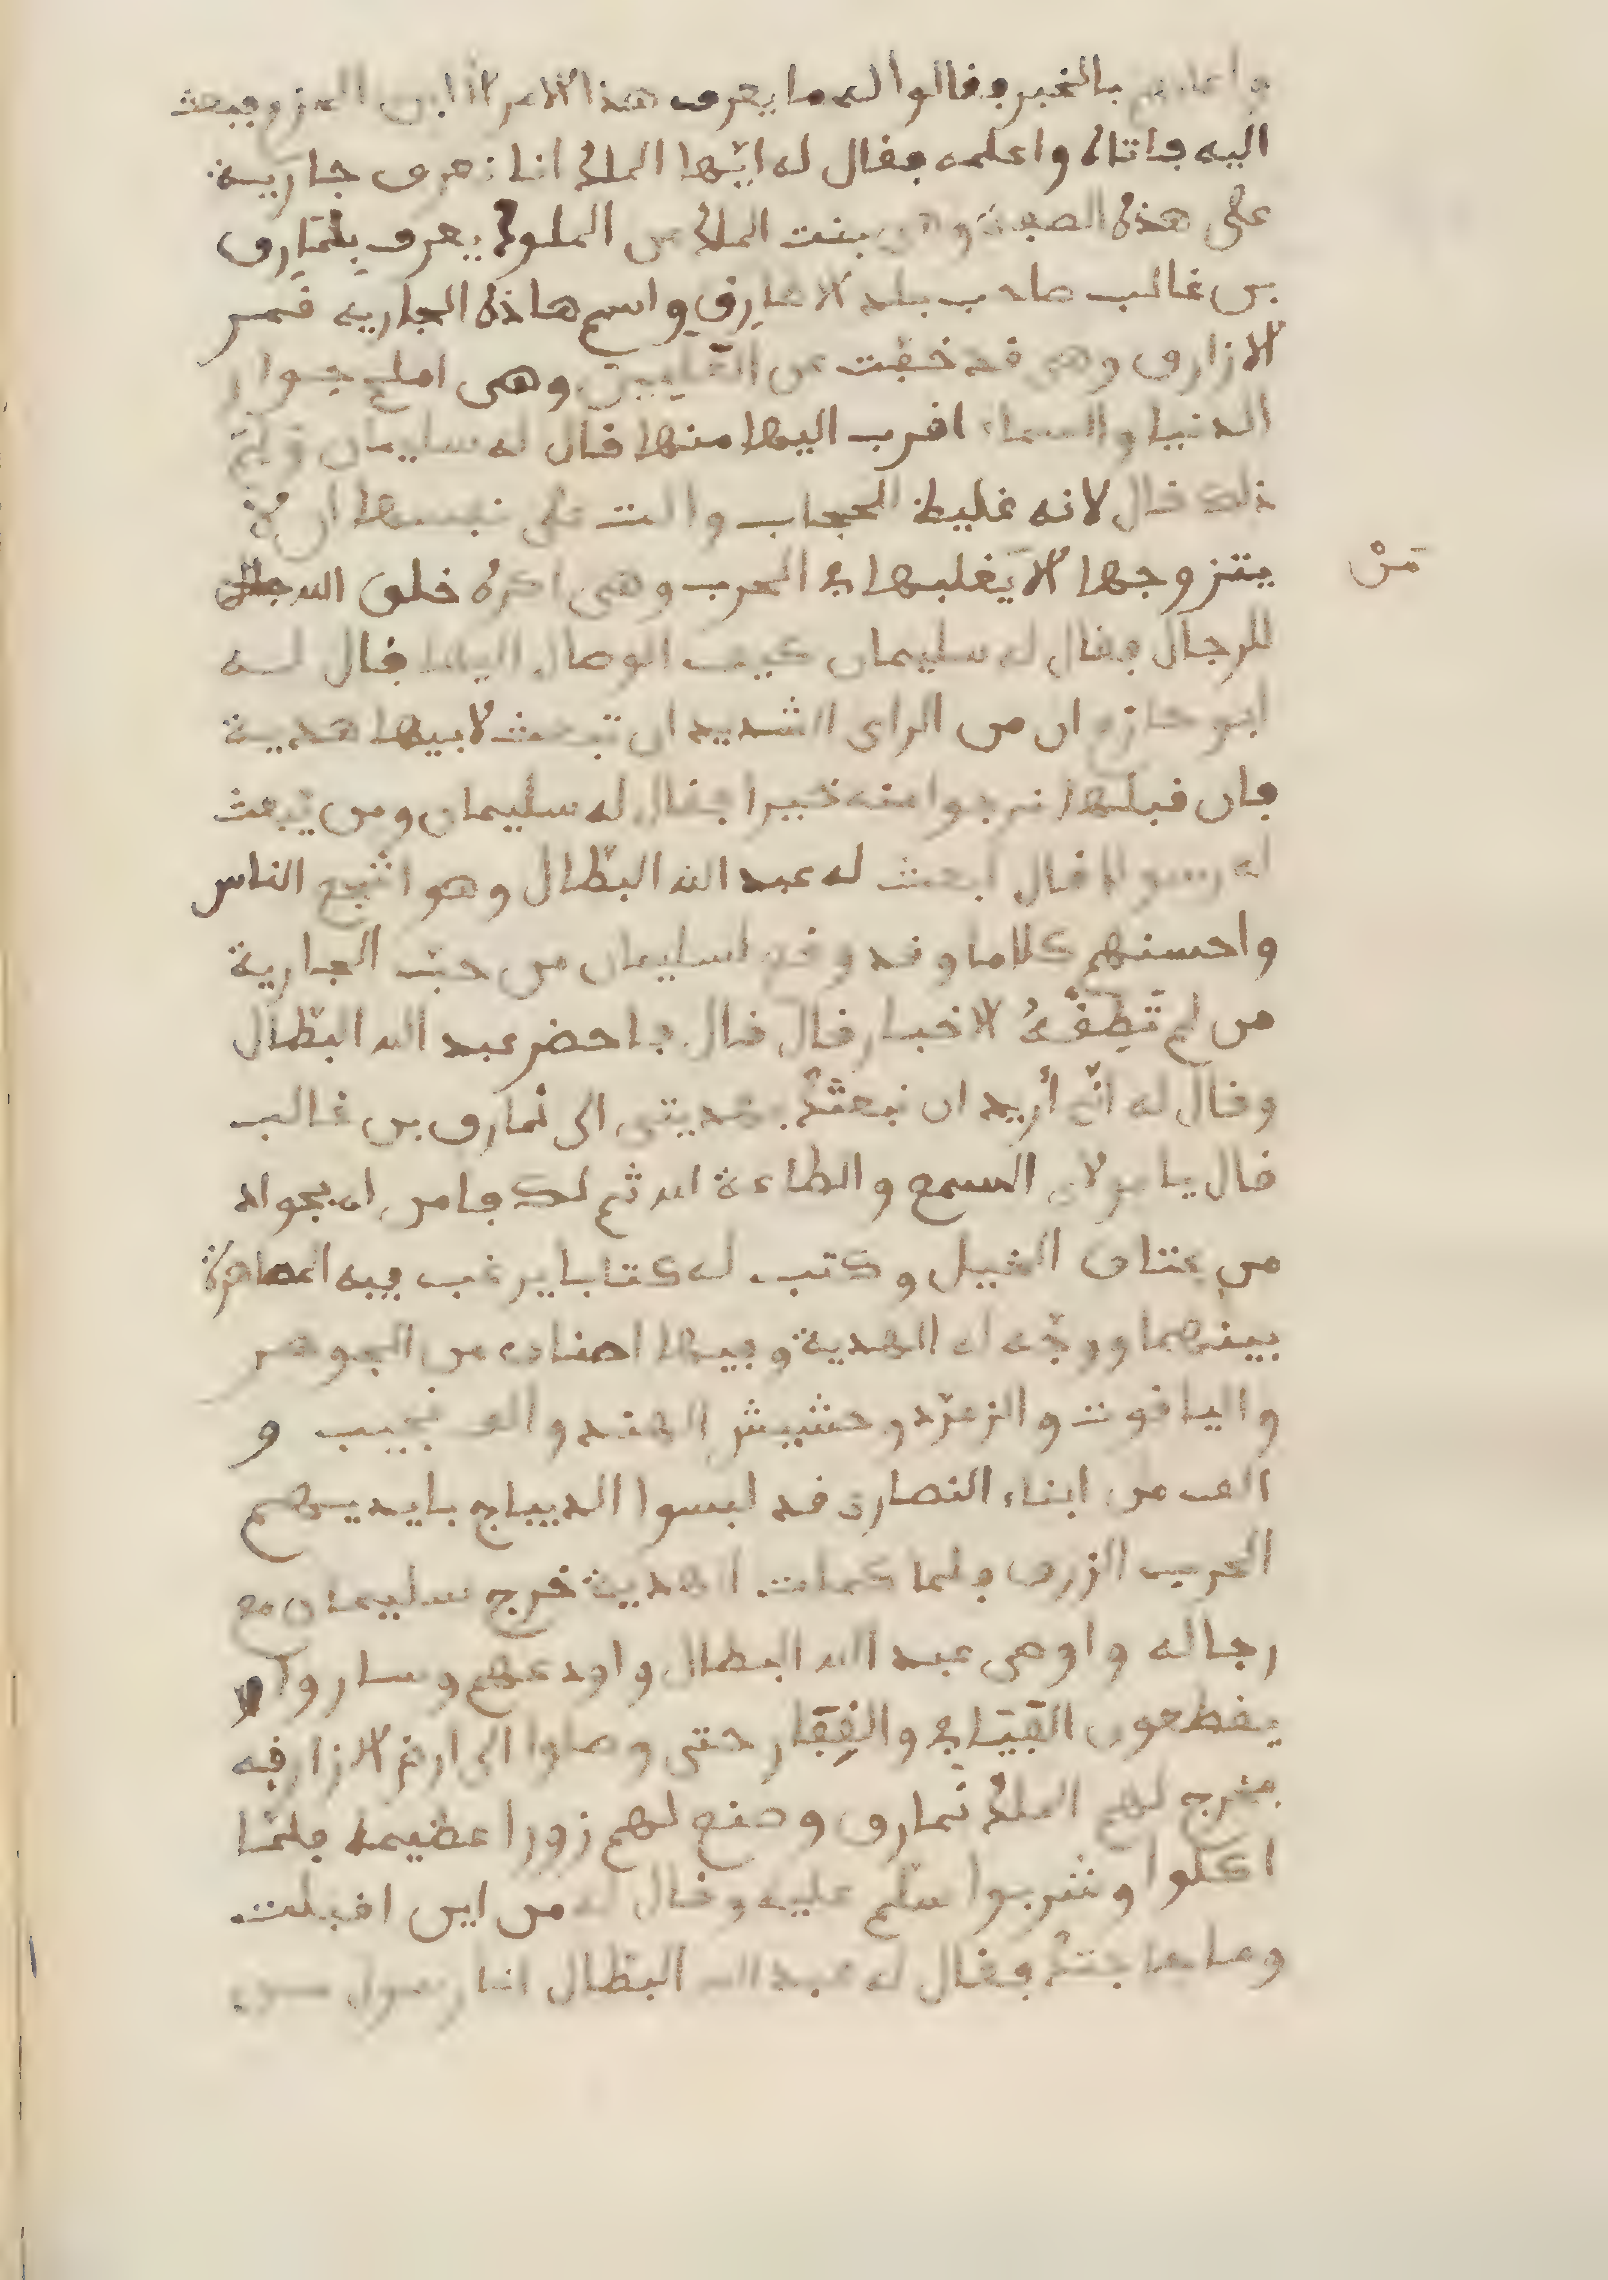 واعلمهم بالخبر فقالوا له ما يعرف هذا الامر الا ابن العز فبعث
اليه فاتاه واعلمه فقال له ايّها الملك انا نعرف جارية
على هذه الصفة وهي بنت الملك من الملوك يعرف بنمارق
بن غالب صاحب بلد الازارق واسم هاذه الجاريه قمر
الازارق وهي قد خفت عن وهي املح جوار
الدنيا والسماء اقرب اليها منها قال له سليمان ولم
ذلك قال لانه غليظ الحجاب والت على نفسها ان لا
يتزوجها الا يغلبها في الحرب وهي اكره خلق الله
مَنْ
للرجال فقال له سليمان كيف الوصال اليها فقال لـه
ابو حازم ان من الراى الشديد ان تبعث لابيها هدية
فان قبلها نرجوا منه خيرا فقال له سليمان ومن نبعث
له رسولا قال ابعث له عبد الله البطّال وهو اشجع الناس
واحسنهم كلاما وقد وقع لسليمان من حبّ الجارية
من لم الاخبار قال قال فاحضر عبد الله البطّال
وقال له انّي أريد ان نبعثك بهديتى الى نمارق بن غالب
قال يا مولاي السمع والطاعة لله ثم لك فامر له بجواد
من عتاق الخيل وكتب له كتابا يرغب فيه المصاهرة
بينهما ووجّه له الهدية وفيها اصناف من الجوهر
والياقوت والزمرّد وحشيش الهند والف نجيب و
الف من ابناء النصارى قد لبسوا الديباج بايديهم
الحرب الزرق فلما كملت الهدية خرج سليمان مع
رجاله واوصى عبد الله البطال واودعهم وساروا
يقطعون الفيافي والقفار حتى وصلوا الى ارض الازارقه
فخرج لهم الملك نمارق وصنع لهم زورا عظيمة فلمّا
اكلوا وشربوا سلّم عليه وقال له من اين اقبلت
وما حاجتك فقال له عبد الله البطّال انا رسول